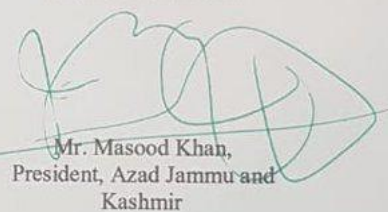 Mr. Masood Khan,
President, Azad Jammu and
Kashmir